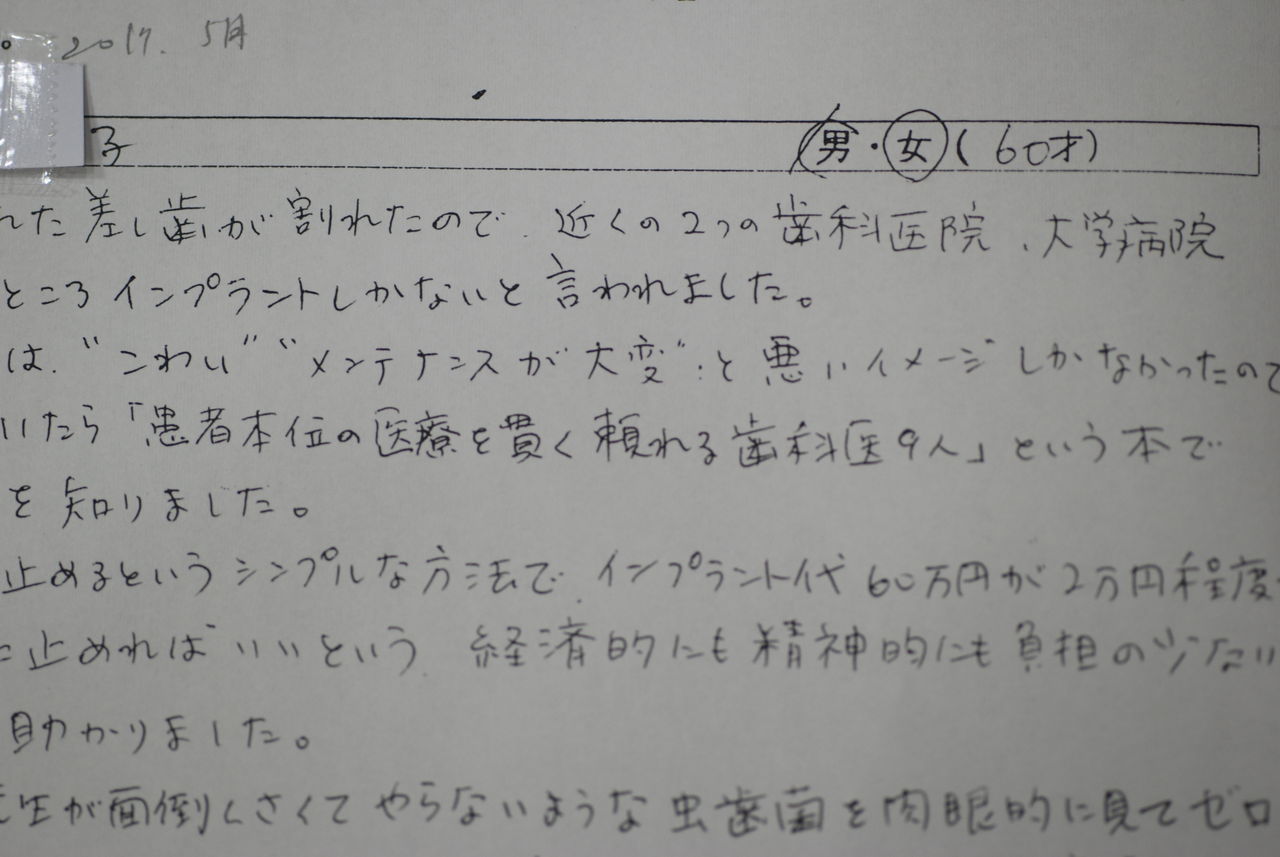 2017. 5月
子 男・女(60才)
れた差し歯が割れたので、近くの2つの歯科医院、大学病院
ところインプラントしかないと言われました。
は、"こわい" "メンテナンスが大変"と悪いイメージしかなかったので
いたら「患者本位の医療を貫く頼れる歯科医9人」という本で
を知りました。
止めるというシンプルな方法で、インプラント代60万円が2万円程度
に止めればいいという、経済的にも精神的にも負担の少ない
助かりました。
先生が面倒くさくてやらないような虫歯菌を肉眼的に見てゼロ